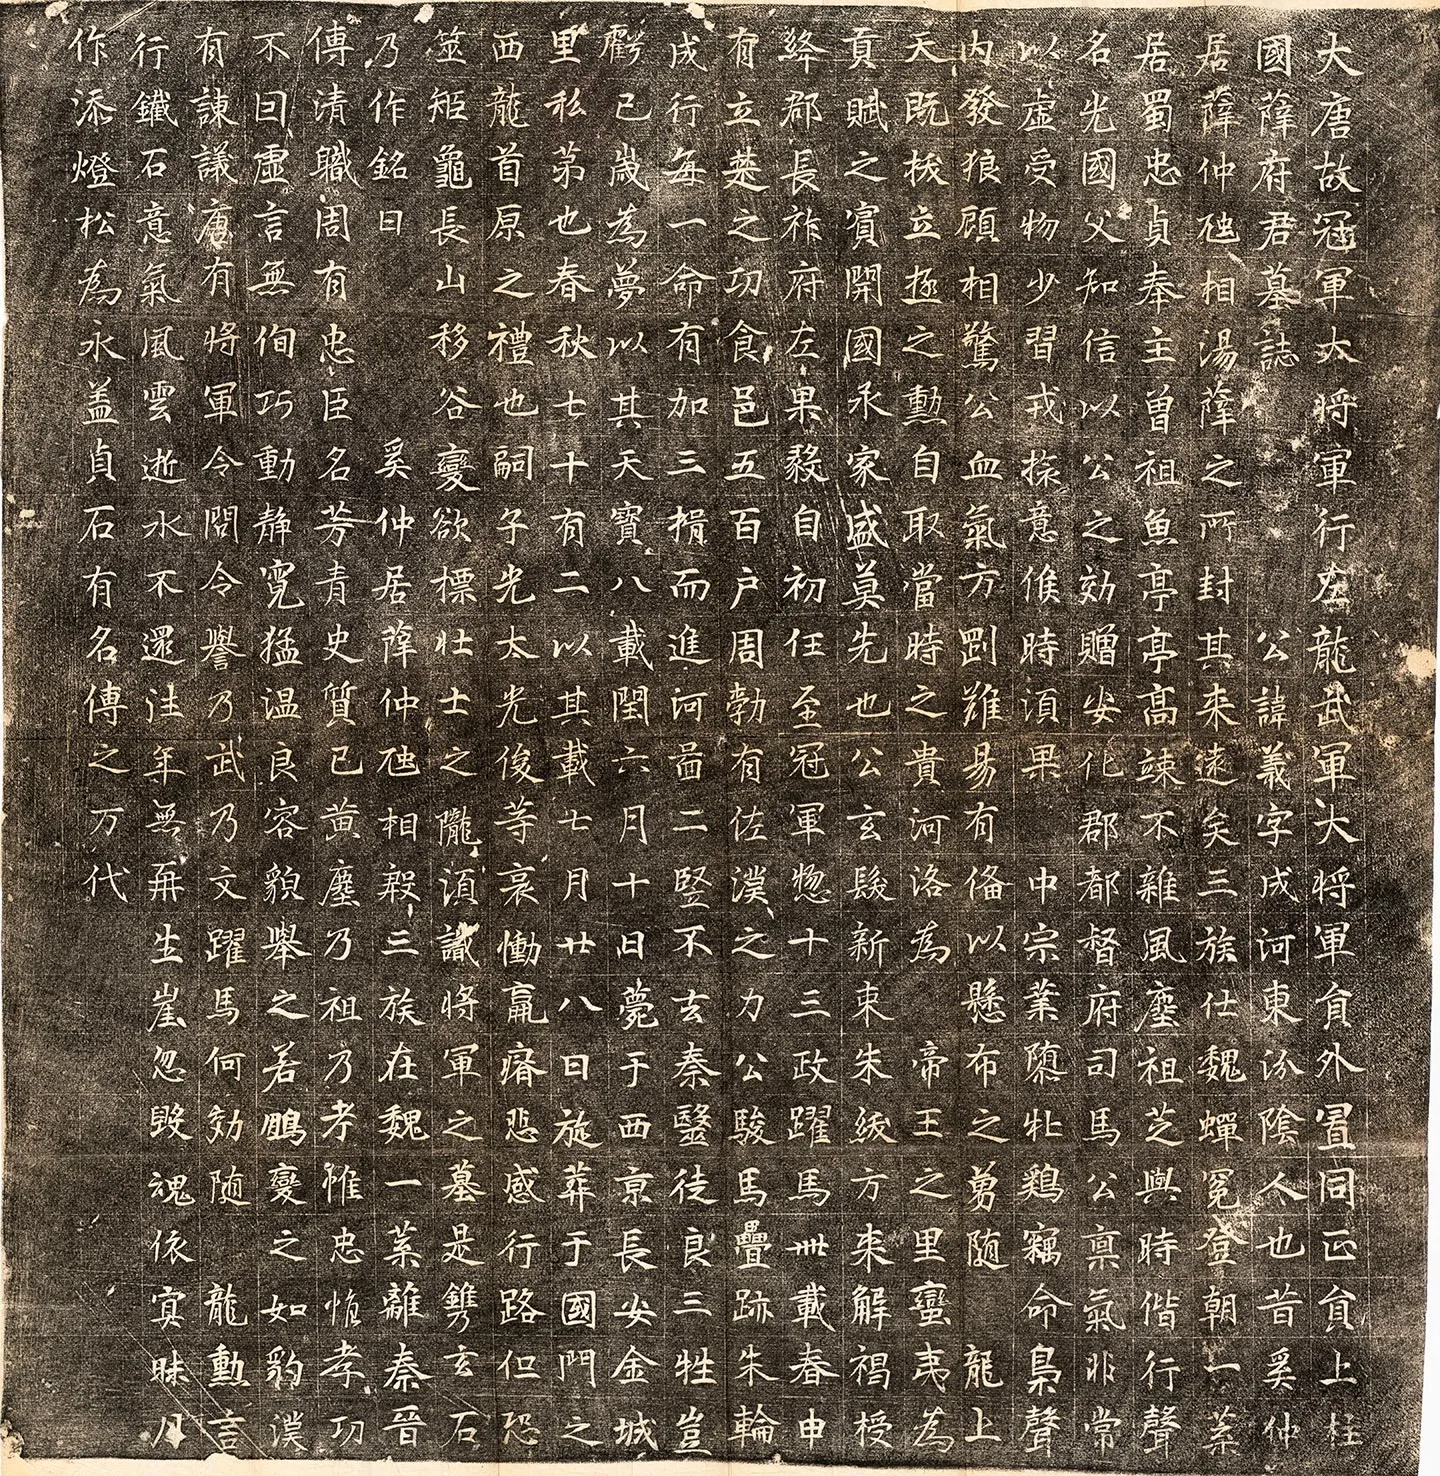 大唐故冠軍大將軍行左龍武軍大將軍員外置同正員上柱
國薛府君墓誌 公諱義字成河東汾陰人也昔奚仲
居薛仲虺相湯薛之所封其来遠矣三族仕魏蟬冕登朝一葉
居蜀忠貞奉主曽祖魚亭亭高竦不雜風塵祖芝與時偕行聲
名光國父知信以公之効贈安化郡都督府司馬公禀氣非常
以虛受物少習戎揆意俟時須果 中宗業隳牝鷄竊命梟聲
内發狼顧相驚公血氣方剛難易有俻以懸布之勇随 龍上
天既栈立極之勲自取當時之貴河洛為 帝王之里蠻夷為
貢賦之賓開國承家盛莫先也公玄髮新束朱紱方来解褐授
絳郡長祚府左果毅自初任至冠軍惣十三政躍馬卌載春申
有立楚之功食邑五百户周勃有佐漢之力公駿馬疊跡朱輪
成行每一命有加三揖而進河啚二竪不去秦毉徒良三牲豈
虧已歲為夢以其天寶八載閏六月十日薨于西京長安金城
里私第也春秋七十有二以其載七月廿八日旋葬于國門之
西龍首原之禮也嗣子光太光俊等哀慟羸瘠悲感行路但恐
筮矩龜長山移谷變欲標壯士之隴須識將軍之墓是鐫玄石
乃作銘曰 奚仲居薛仲虺相殷三族在魏一葉離秦晉
傳清職周有忠臣名芳青史質已黄塵乃祖乃考惟忠惟孝功
不曰虛言無徇巧動静寛猛温良容貌舉之若鵬變之如豹漢
有諫議唐有將軍令聞令譽乃武乃文躍馬何効随 龍勲言
行鐵石意氣風雲逝水不還往年無再生崖忽毀魂依寘昧月
作添燈松為永盖貞石有名傳之万代